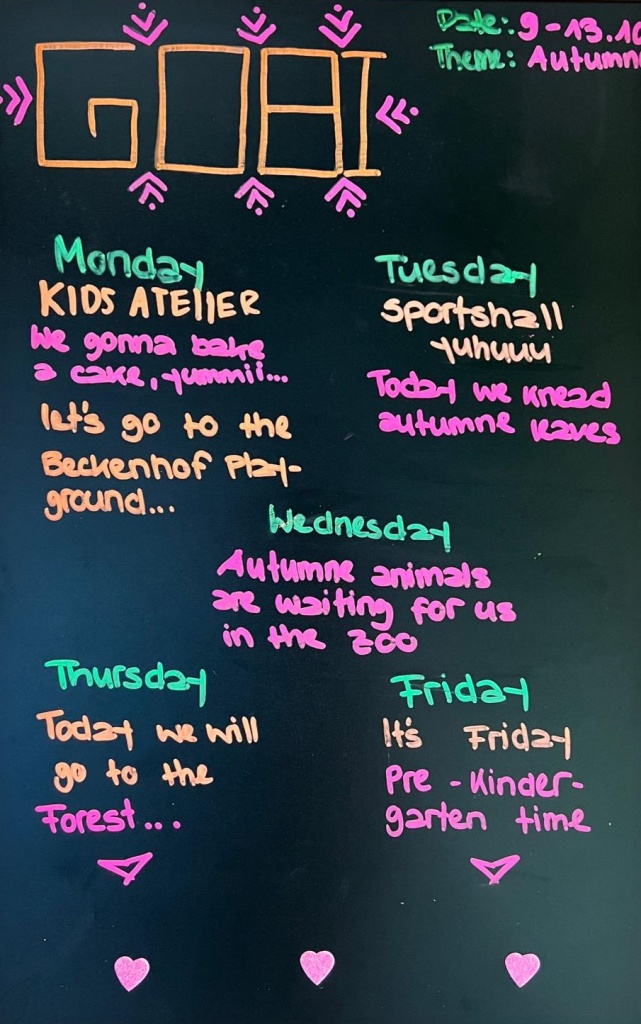 GOBI
Date: 9-13.10
Theme: Autumne
Monday
KIDS ATELIER
We gonna bake
a cake, yummii...
let's go to the
Beckenhof Play-
ground...
Tuesday
Sportshall
yuhuuu
Today we knead
autumne leaves
Wednesday
Autumne animals
are waiting for us
in the zoo
Thursday
Today we will
go to the
Forest...
Friday
It's Friday
Pre-Kinder-
garten time